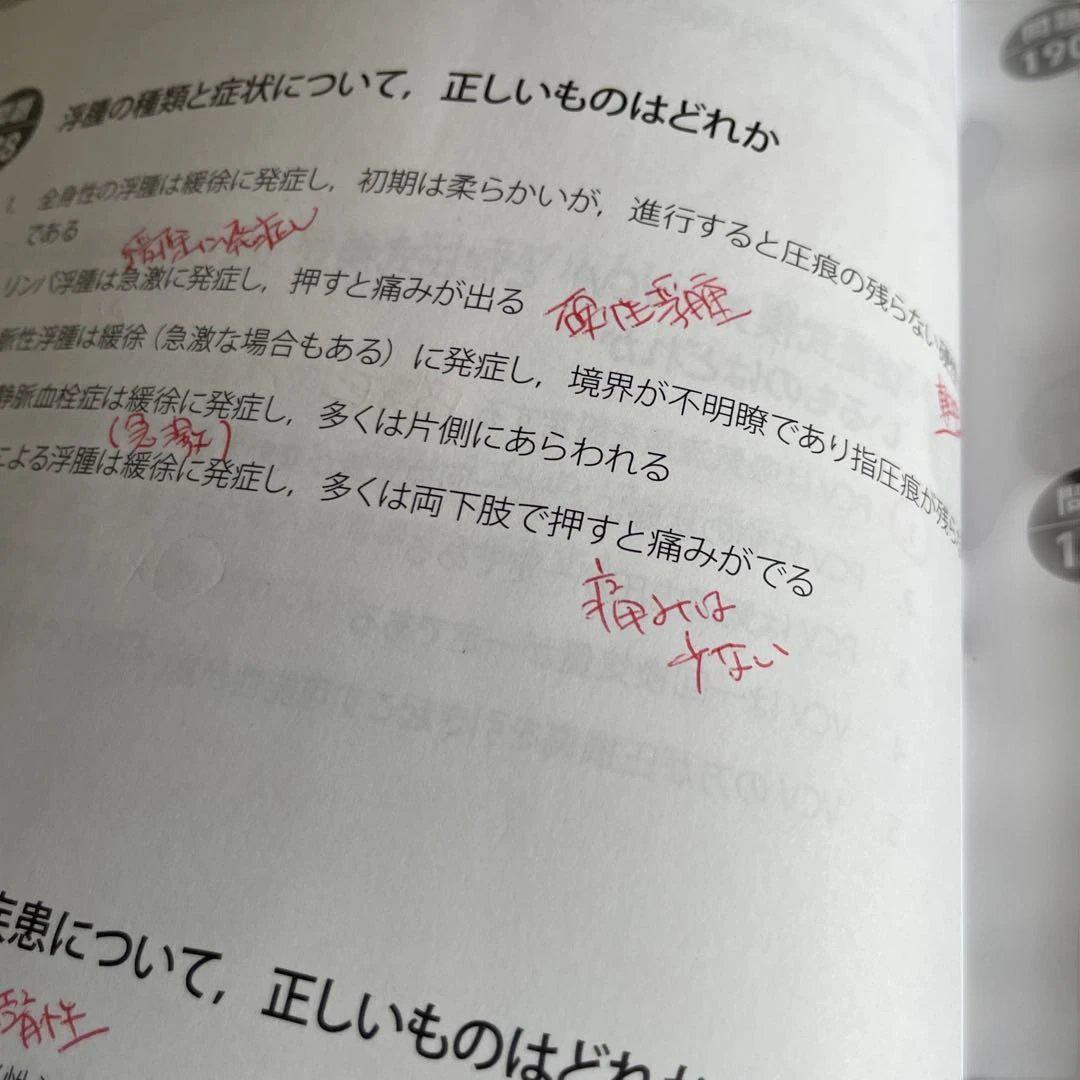 問題
190
浮腫の種類と症状について，正しいものはどれか
1. 全身性の浮腫は緩徐に発症し，初期は柔らかいが，進行すると圧痕の残らない
である
緩徐に発症し
リンパ浮腫は急激に発症し，押すと痛みが出る
硬性浮腫
脈性浮腫は緩徐（急激な場合もある）に発症し，境界が不明瞭であり指圧痕が残ら
静脈血栓症は緩徐に発症し，多くは片側にあらわれる
(急激)
による浮腫は緩徐に発症し，多くは両下肢で押すと痛みがでる
痛みは
少ない
問
1
疾患について，正しいものはどれか